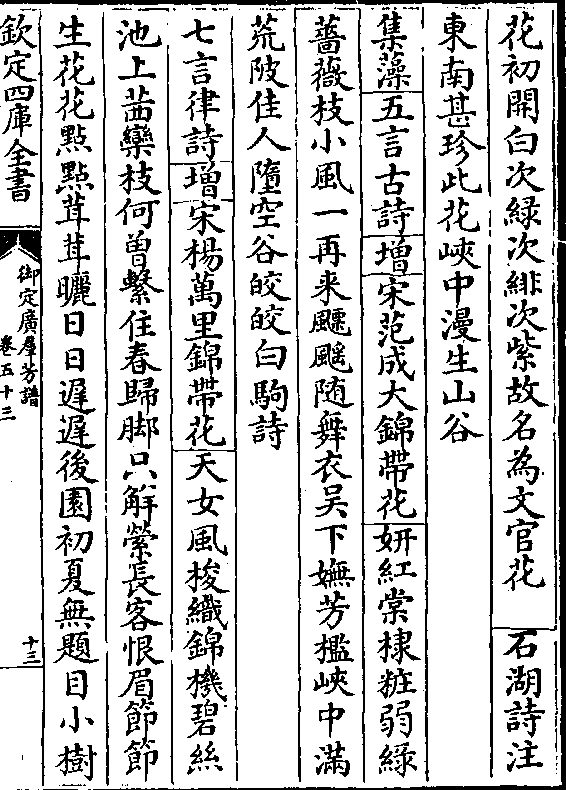 花初開白次綠次緋次紫故名為文官花 石湖詩注
東南甚珍此花峽中漫生山谷
集藻 五言古詩 增 宋范成大錦帶花 妍紅棠棣粧弱綠
薔薇枝小風一再来飄颻随舞衣吴下嫵芳檻峽中滿
荒陂佳人墮空谷皎皎白駒詩
七言律詩 增 宋楊萬里錦帶花 天女風梭織錦機碧絲
池上茜欒枝何曽繫住春歸脚只解縈長客恨眉節節
生花花點點茸茸曬日日遲遲後園初夏無題目小樹
欽定四庫全書
御定廣羣芳譜
卷五十三
十三